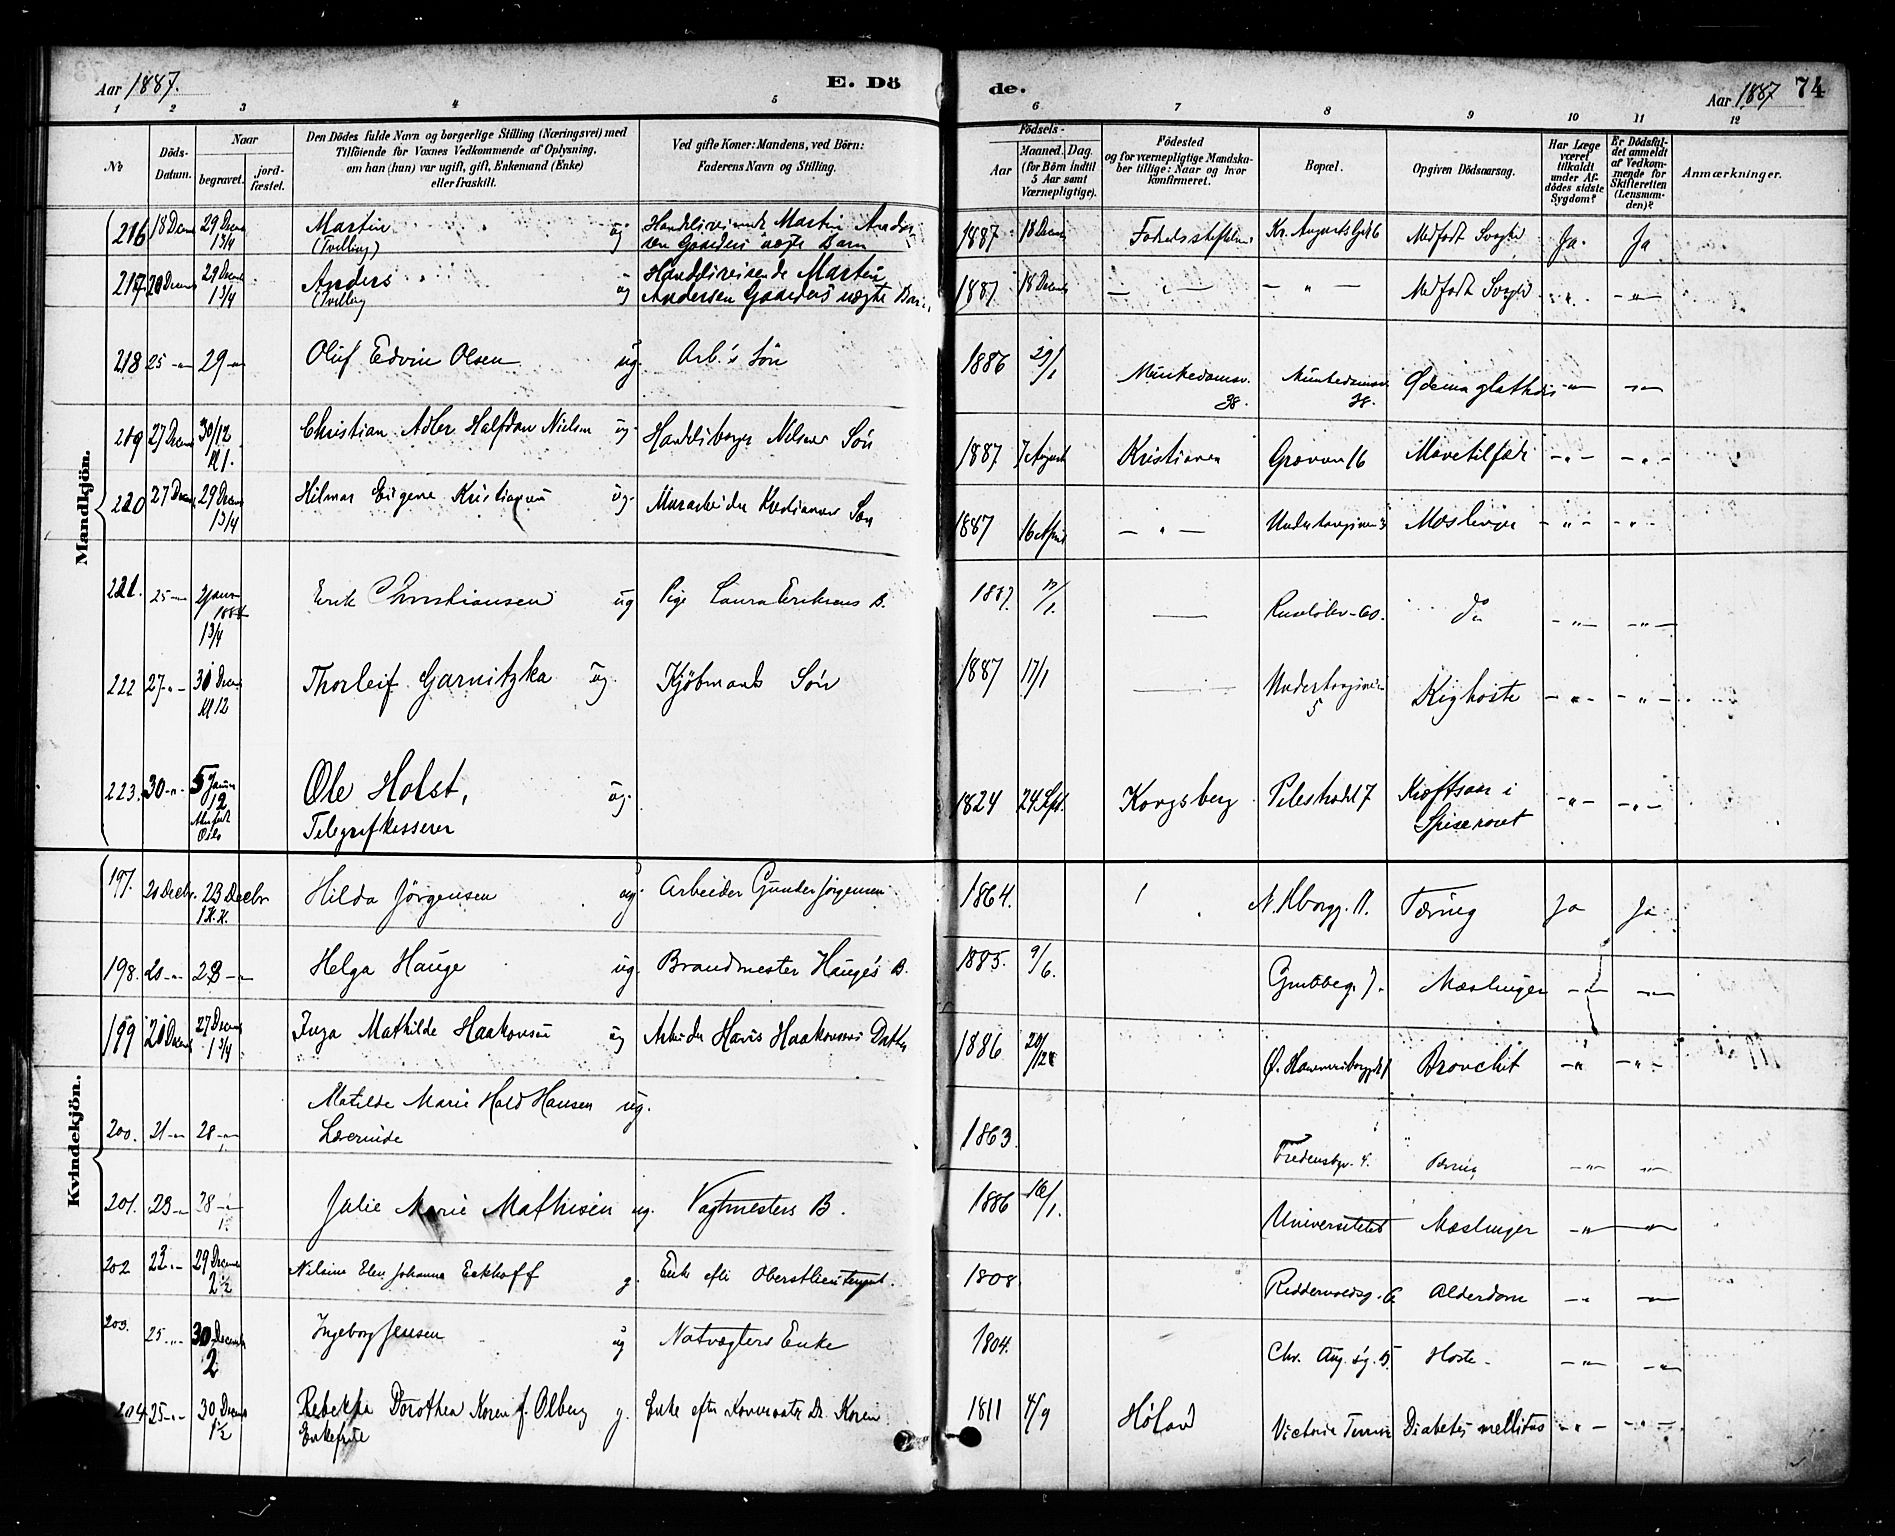 Aar 1887.
E. Dö
de.
Aar 1887
74
1 2 3 4 5 6 7 8 9 10 11 12
No
Döds-Datum.
Naar
begravet.
jord-fæstet.
Den Dödes fulde Navn og borgerlige Stilling (Næringsvei) med
Tilföiende for Voxnes Vedkommende af Oplysning,
om han (hun) var ugift, gift, Enkemand (Enke)
eller fraskilt.
Ved gifte Koner: Mandens, ved Börn:
Faderens Navn og Stilling.
Födsels-
Aar
Maaned. Dag.
(for Börn indtil
5 Aar samt
Værnepligtige).
Födested
og for værnepligtige Mandska-
ber tillige: Naar og hvor
konfirmeret.
Bopæl.
Opgiven Dödsaarsag.
Har Læge
været
tilkaldt
under Af-
dödes sidste
Sygdom?
Er Dödsfal-
det anmeldt
af Vedkom-
mende for
Skifteretten
(Lensman-
den)?
Anmærkninger.
Mandkjön.
216 18 Decem 29 Decem 1 3/4 Martin (Tvilling) ug Martin Andersen Gaarders ægte Barn 1887 18 Decem Kr. Augusts Gd 6 Medfødt Svaghed Ja Ja
217 20 Decem 29 Decem 1 3/4 Anders (Tvilling) ug Handelsreisende Martin Andersen Gaarders ægte Barn 1887 18 Decem — " — — " — Medfødt Svaghed — " — — " —
218 25 — " 29 — " Oluf Edvin Olsen ug. Arb.'s Sön 1886 29/1 Munkedamsv. 38. Munkedamsv. 38. — " — — " —
219 27 Decem 30/12 Kl 1. Christian Adler Halfdan Nielsen ug Nilsens Sön 1887 7 August Kristiania Grønven 16 Mavetilfælde — " — — " —
220 27 Decem 29 Decem 1 3/4 Hilmar Eugene Kristiansen ug. Murarbeider Kristiansens Søn 1887 16 April — " — Meslinger — " — — " —
221. 25 — " 2 Januar 1888 1 3/4 Erik Christiansen ug Pige Laura Eriksens B. 1887. — Ruseløkv. 60. do — " — — " —
222 27 — " — 30 Decem Kl 12 Thorleif Garnitzka ug. Kjöbmands Sön 1887 17/1 — 5 Kighoste — " — — " —
223. 30 — " — 5 Januar 12 Oslo Ole Holst, Telegrafkasserer ug. 1824 24 Sept. Kongsberg Pilestrædet 7 Kræftsaar i Spiserøret — " — — " —
Kvindekjön.
197. 20 Decbr. 23 Decbr 1 K.K. Hilda Jörgensen ug. Arbeider Gunder Jörgensen 1864. Tæring Ja Ja
198. 20 — " 23 — " Helga Hauge ug. Brandmester Hauge's B. 1885. 9/6. Grubbeg. 7. Meslinger — " — — " —
199 20 Decem 27 Decem 1 3/4 Inga Mathilde Haakonsen ug Arbeider Hans Haakonsens Datter 1886 20/12 Ø. Hammersborggd 1 Bronchit — " — " —
200. 21 — " 28 — " Matilde Marie Hald Hansen Lærerinde ug. 1863. Fredensbgv. 4. Tæring — " — — " —
201. 23 — " 28 — " 1. Julie Marie Mathisen ug. Vagtmesters B. 1886 16/1. Universitetet Meslinger — " — — " —
202 23 — " — 29 Decem 2 1/2 Nilsine Elen Johanne Eckhoff g. Enke efter Oberstlieutenant. 1808 Riddervoldsg. 6 Alderdom — " — " —
203. 25 — " — 30 Decem 2 Ingeborg Jensen ug Natvægters Enke 1804. Chr. Aug.s g. 15 Hoste — " — — " —
204 25 — " — 30 Decem 1 1/2 Rebekka Dorothea Koren f. Olberg Enkefrue g. Enke efter Dr. Koren 1811 4/9 Höland Victoria Terrasse Diabetes mellitus — " — — " —